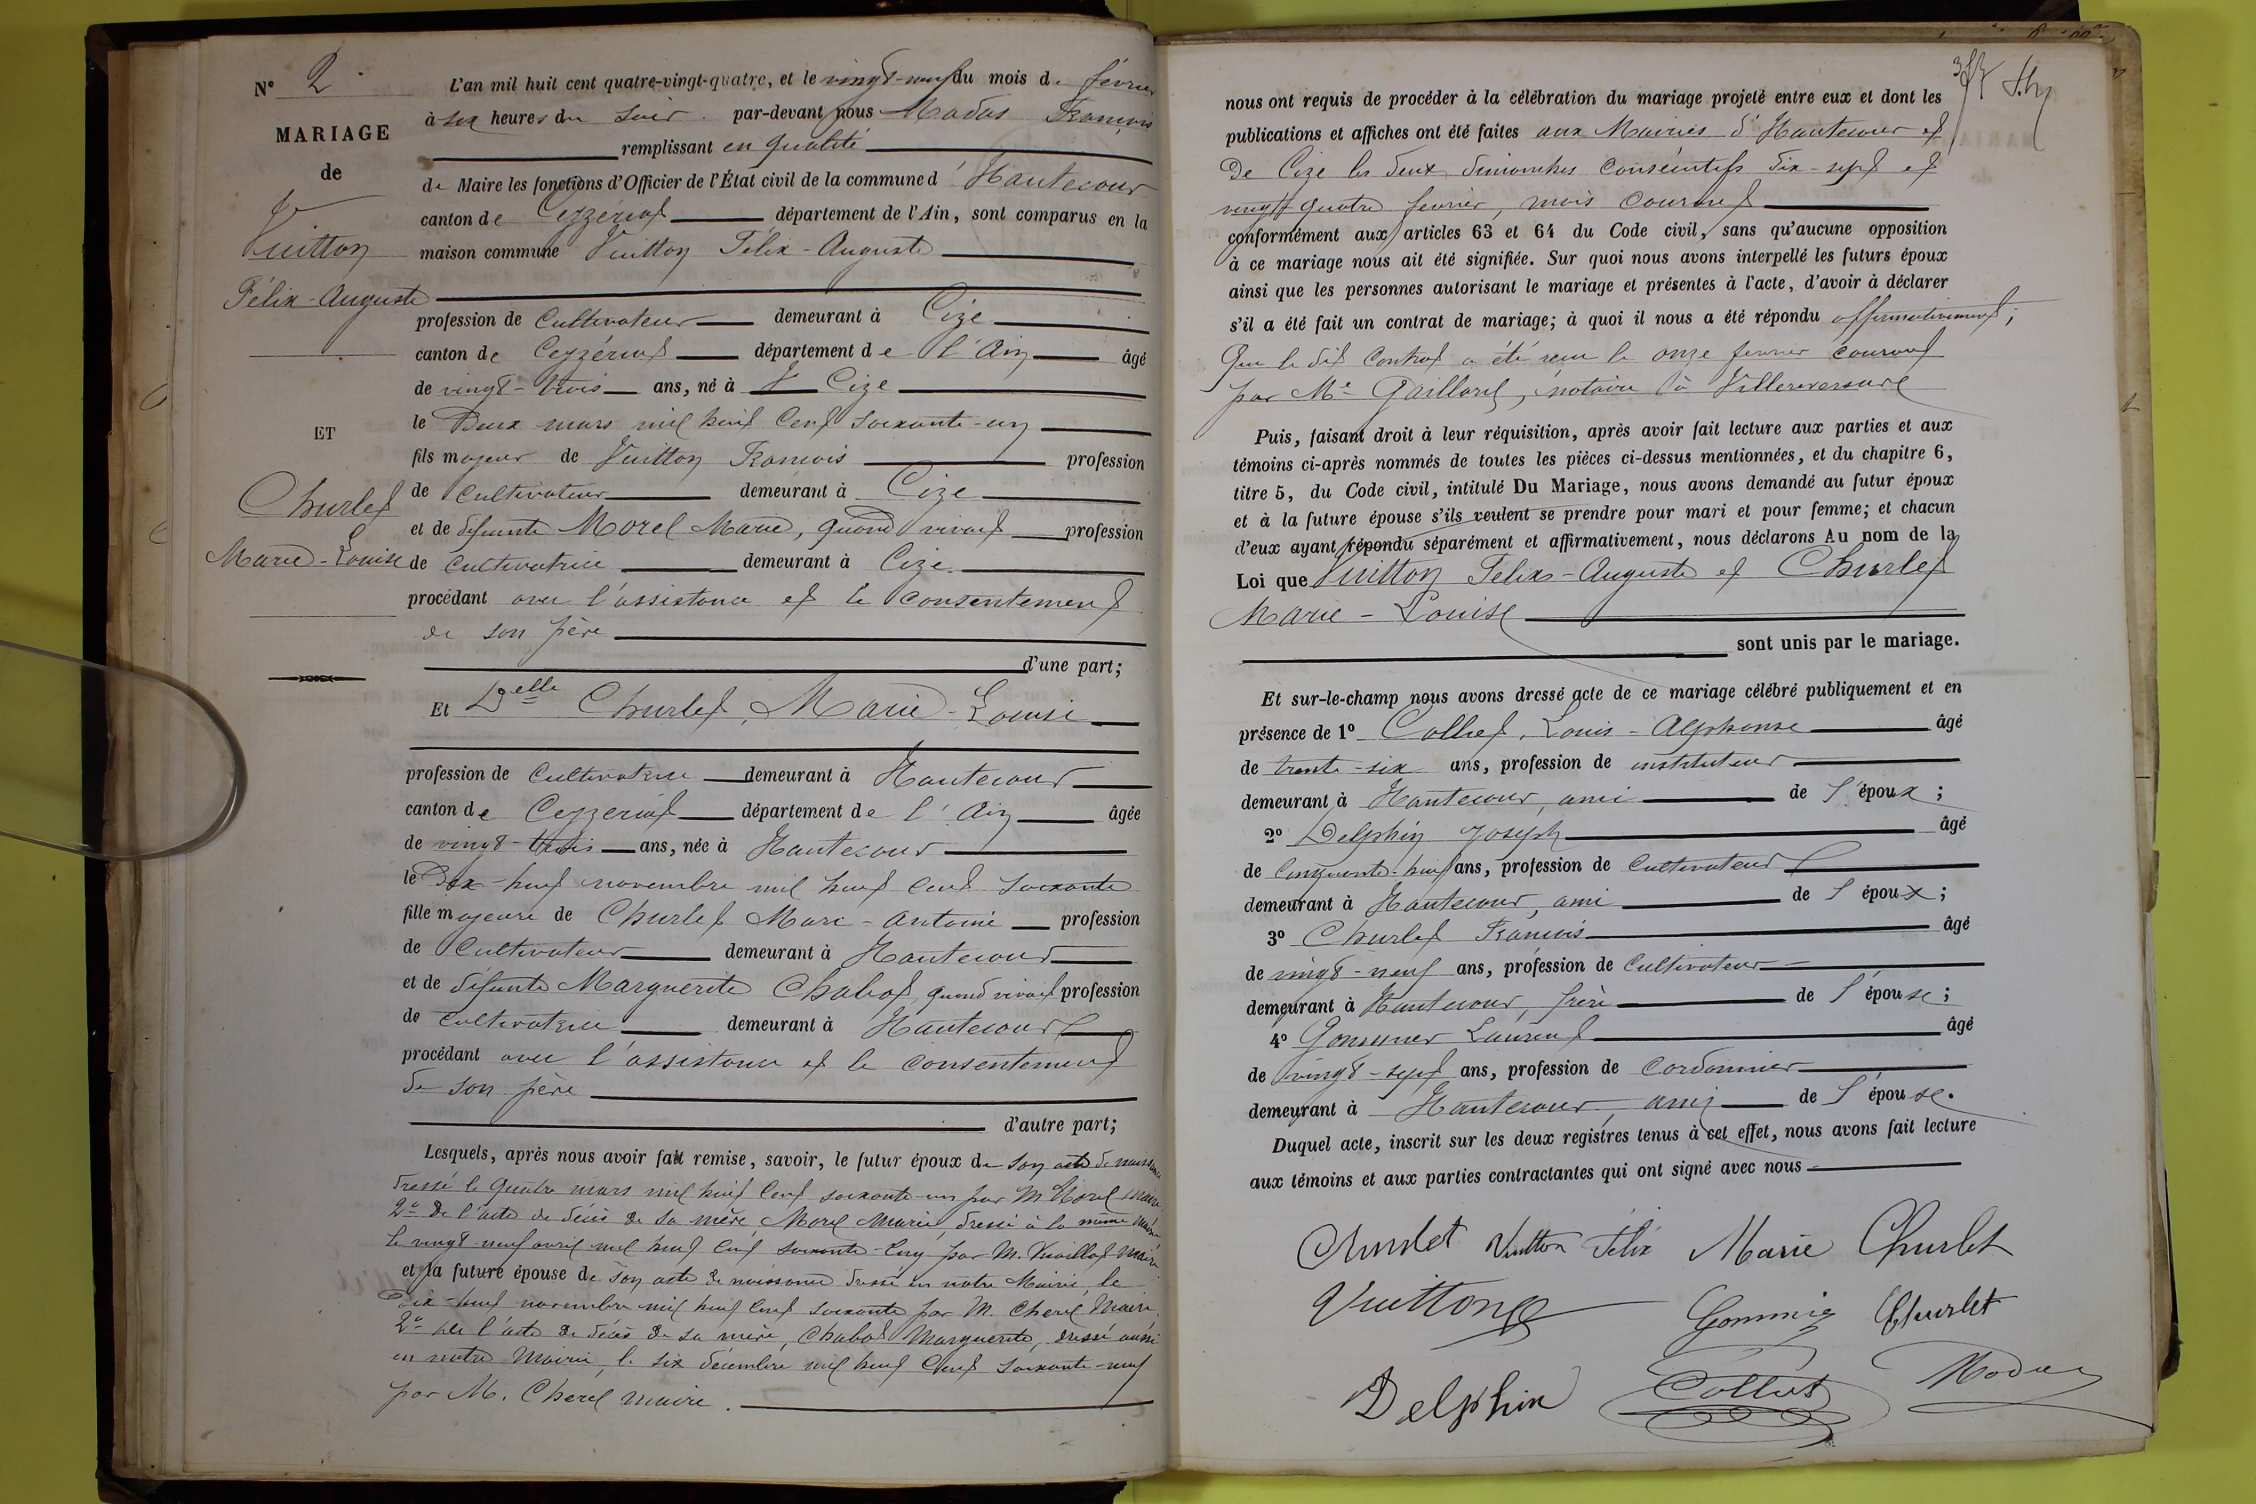 N° 2
MARIAGE
de
Vuitton
Félix-Auguste
ET
Churlet
Marie-Louise
L'an mil huit cent quatre-vingt-quatre, et le vingt-neuf du mois de février
à six heures du soir par-devant nous Modas François
remplissant en qualité
de Maire les fonctions d'Officier de l'État civil de la commune d'Hautecour
canton de Ceyzériat département de l'Ain, sont comparus en la
maison commune Vuitton Félix-Auguste
profession de Cultivateur demeurant à Cize
canton de Ceyzériat département de l'Ain âgé
de vingt-trois ans, né à Cize
le Deux mars mil huit cent soixante-un
fils majeur de Vuitton François profession
de Cultivateur demeurant à Cize
et de défunte Morel Marie, quand vivait profession
de Cultivatrice demeurant à Cize
procédant avec l'assistance et le consentement
de son père
d'une part;
Et Delle Churlet, Marie-Louise
profession de Cultivatrice demeurant à Hautecour
canton de Ceyzériat département de l'Ain âgée
de vingt-trois ans, née à Hautecour
le Dix-huit novembre mil huit cent soixante
fille majeure de Churlet Marc-Antoine profession
de Cultivateur demeurant à Hautecour
et de défunte Marguerite Chabot, quand vivait profession
de Cultivatrice demeurant à Hautecour
procédant avec l'assistance et le consentement
de son père
d'autre part;
Lesquels, après nous avoir fait remise, savoir, le futur époux de son acte de naissance
dressé le quatre mars mil huit cent soixante-un par M. Morel Maire
2° De l'acte de décès de sa mère, Morel Marie, dressé à la même Mairie
le vingt-neuf avril mil huit cent soixante-cinq par M. Maire
et la future épouse de son acte de naissance dressé en notre Mairie, le
Dix-huit novembre mil huit cent soixante par M. Cherel Maire.
2° de l'acte de décès de sa mère, Chabot Marguerite, dressé aussi
en notre Mairie, le six décembre mil huit cent soixante-neuf
par M. Cherel maire.
nous ont requis de procéder à la célébration du mariage projeté entre eux et dont les
publications et affiches ont été faites aux Mairies d'Hautecour et
De Cize les deux dimanches consécutifs dix-sept et
vingt quatre février, mois courant
conformément aux articles 63 et 64 du Code civil, sans qu'aucune opposition
à ce mariage nous ait été signifiée. Sur quoi nous avons interpellé les futurs époux
ainsi que les personnes autorisant le mariage et présentes à l'acte, d'avoir à déclarer
s'il a été fait un contrat de mariage; à quoi il nous a été répondu affirmativement;
Que le dit contrat a été reçu le onze février courant
par Me Gaillard, notaire à Villereversure
Puis, faisant droit à leur réquisition, après avoir fait lecture aux parties et aux
témoins ci-après nommés de toutes les pièces ci-dessus mentionnées, et du chapitre 6,
titre 5, du Code civil, intitulé Du Mariage, nous avons demandé au futur époux
et à la future épouse s'ils veulent se prendre pour mari et pour femme; et chacun
d'eux ayant répondu séparément et affirmativement, nous déclarons Au nom de la
Loi que Vuitton Félix-Auguste et Churlet
Marie-Louise
sont unis par le mariage.
Et sur-le-champ nous avons dressé acte de ce mariage célébré publiquement et en
présence de 1° Collet, Louis-Alphonse âgé
de trente-six ans, profession de instituteur
demeurant à Hautecour, ami de l'époux;
2° Delphin Joseph âgé
de cinquante-huit ans, profession de Cultivateur
demeurant à Hautecour, ami de l'époux;
3° Churlet François âgé
de vingt-neuf ans, profession de Cultivateur
demeurant à Hautecour, frère de l'épouse;
4° Laurent âgé
de vingt-sept ans, profession de Cordonnier
demeurant à Hautecour, ami de l'épouse.
Duquel acte, inscrit sur les deux registres tenus à cet effet, nous avons fait lecture
aux témoins et aux parties contractantes qui ont signé avec nous
Churlet Vuitton Félix Marie Churlet
Vuitton Churlet
Delphin Collet Modas